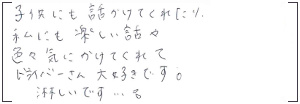 子供にも話かけてくれたり、
私にも楽しい話や
色々気にかけてくれて
ドライバーさん大好きです。
淋しいです…。